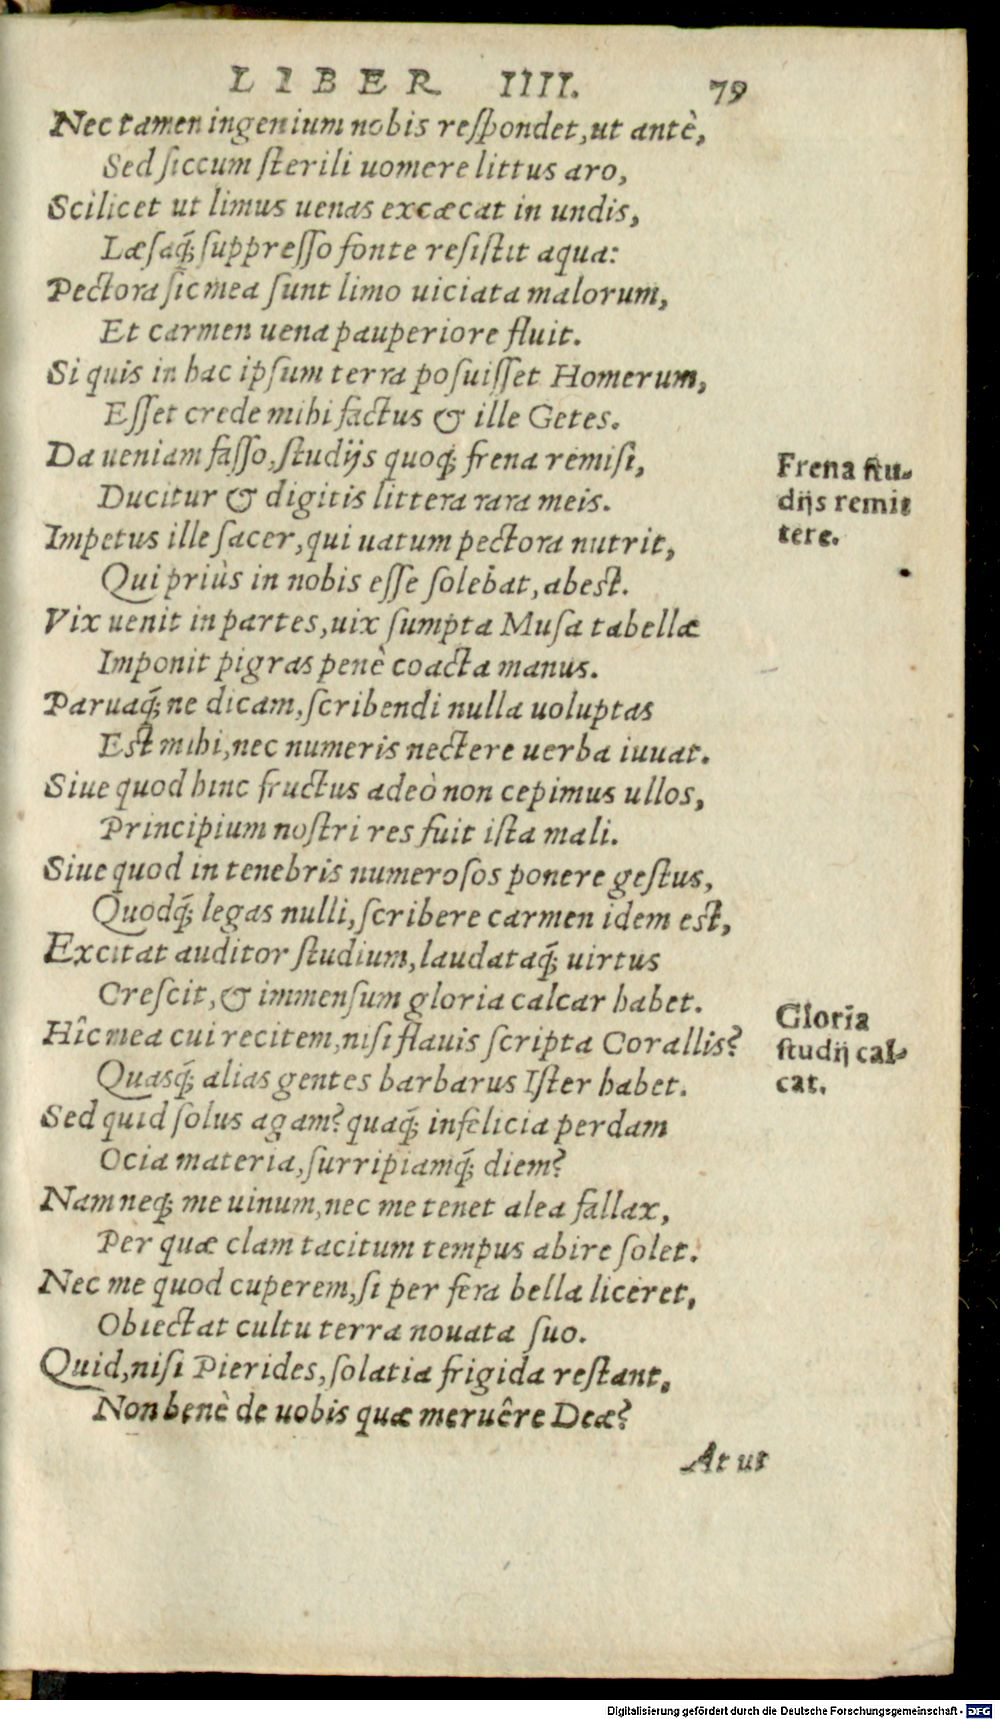 LIBER IIII. 79
Nec tamen ingenium nobis respondet, ut antè,
Sed siccum sterili uomere littus aro,
Scilicet ut limus uenas excæcat in undis,
Læsaq́; suppresso fonte resistit aqua:
Pectora sic mea sunt limo uiciata malorum,
Et carmen uena pauperiore fluit.
Si quis in hac ipsum terra posuisset Homerum,
Esset crede mihi factus & ille Getes.
Da ueniam fasso, studijs quoq; frena remisi,
Ducitur & digitis littera rara meis.
Frena stu-
dijs remit
tere.
Impetus ille sacer, qui uatum pectora nutrit,
Qui priùs in nobis esse solebat, abest.
Vix uenit in partes, uix sumpta Musa tabellæ
Imponit pigras penè coacta manus.
Paruaq́; ne dicam, scribendi nulla uoluptas
Est mihi, nec numeris nectere uerba iuuat.
Siue quod hinc fructus adeò non cepimus ullos,
Principium nostri res fuit ista mali.
Siue quod in tenebris numerosos ponere gestus,
Quodq́; legas nulli, scribere carmen idem est,
Excitat auditor studium, laudataq́; uirtus
Crescit, & immensum gloria calcar habet.
Gloria
studij cal-
cat.
Hîc mea cui recitem, nisi flauis scripta Corallis?
Quasq́; alias gentes barbarus Ister habet.
Sed quid solus agam? quaq́; infelicia perdam
Ocia materia, surripiamq́; diem?
Nam neq; me uinum, nec me tenet alea fallax,
Per quæ clam tacitum tempus abire solet.
Nec me quod cuperem, si per fera bella liceret,
Obiectat cultu terra nouata suo.
Quid, nisi Pierides, solatia frigida restant,
Non benè de uobis quæ meruêre Deæ?
At ut
Digitalisierung gefördert durch die Deutsche Forschungsgemeinschaft - DFG